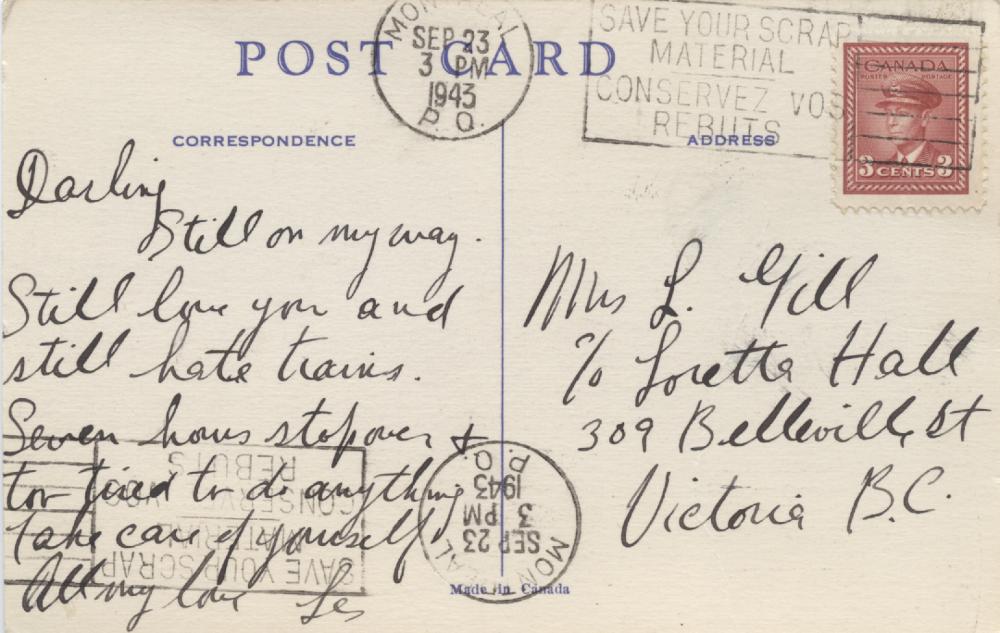 POST CARD
MONTREAL
SEP 23
3 PM
1943
P.Q.
SAVE YOUR SCRAP
MATERIAL
CONSERVEZ VOS
REBUTS
CANADA
POSTES POSTAGE
3 CENTS 3
CORRESPONDENCE
ADDRESS
Darling
Still on my way.
Still love you and
still hate trains.
Seven hours stopover +
too tired to do anything
Take care of yourself
All my love Les
Mrs L. Gill
c/o Loretta Hall
309 Belleville St
Victoria B.C.
MONTREAL
SEP 23
3 PM
1943
P.Q.
SAVE YOUR SCRAP
MATERIAL
CONSERVEZ VOS
REBUTS
Made in Canada